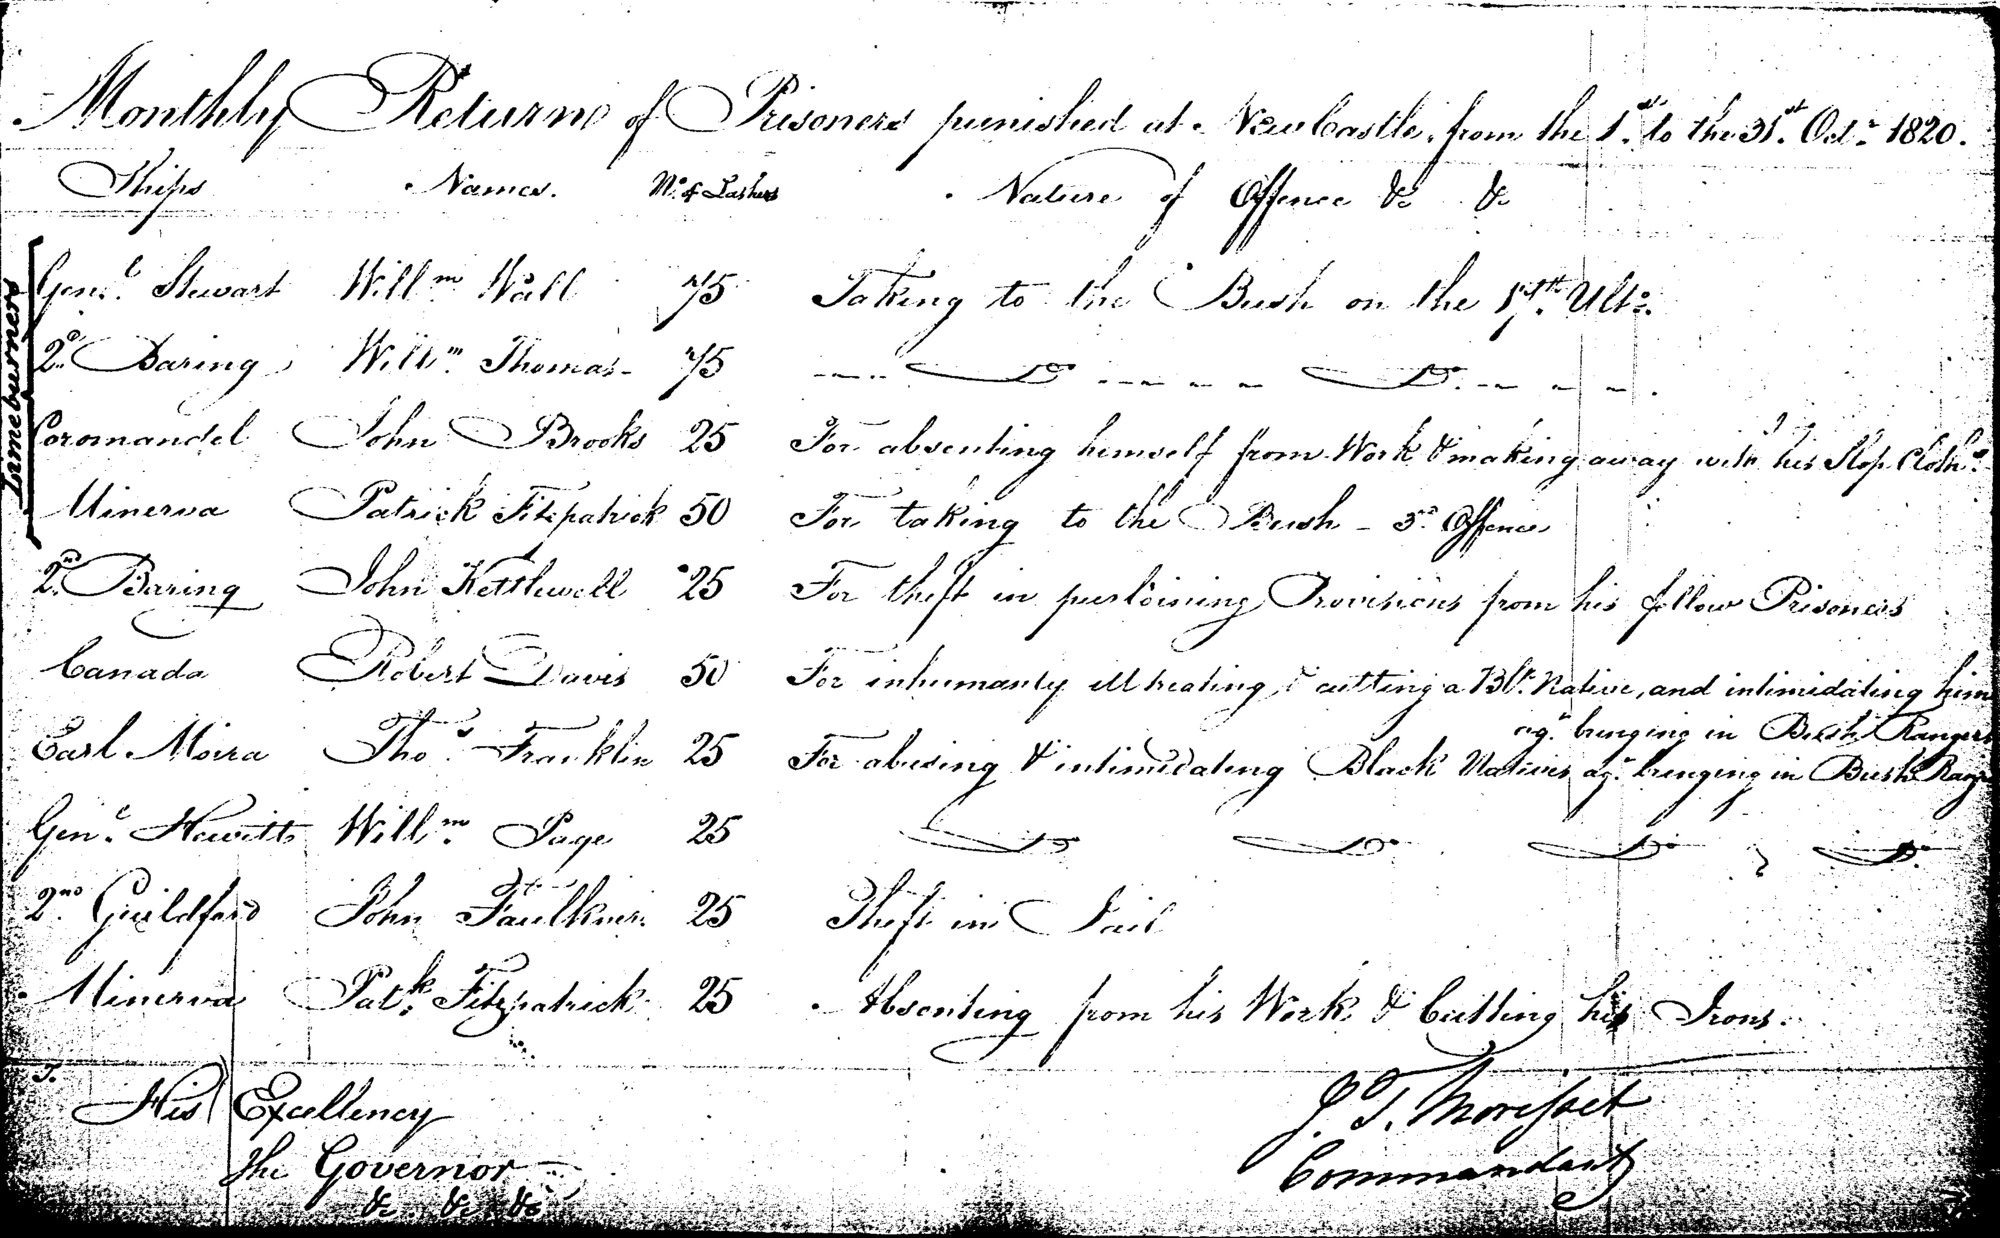 Monthly Return of Prisoners punished at NewCastle, from the 1st to the 31st Octr 1820.
Ships Names. No of Lashes Nature of Offence &c &c
Limeburners
Genl. Stewart Willm Wall 75 Taking to the Bush on the 17th Ulto.
2d Baring Willm Thomas 75 Do Do
Coromandel John Brooks 25 For absenting himself from Work & making away with his Slop Cloths
Minerva Patrick Fitzpatrick 50 For taking to the Bush - 3rd Offence
2nd Baring John Kettlewell 25 For theft in purloining Provisions from his fellow Prisoners
Canada Robert Davis 50 For inhumanly illtreating, & cutting a Blk Native, and intimidating him
agt bringing in Bush Rangers
Earl Moira Thos Franklin 25 For abusing & intimidating Black Natives agt bringing in Bush Rangers
Genl Hewitts Willm Page 25 Do Do Do Do
2nd Guildford John Faulkner 25 Theft in Jail
Minerva Patk Fitzpatrick 25 Absenting from his Work & Cutting his Irons.
His Excellency J. T. Morisset
the Governor Commandant
&c &c &c